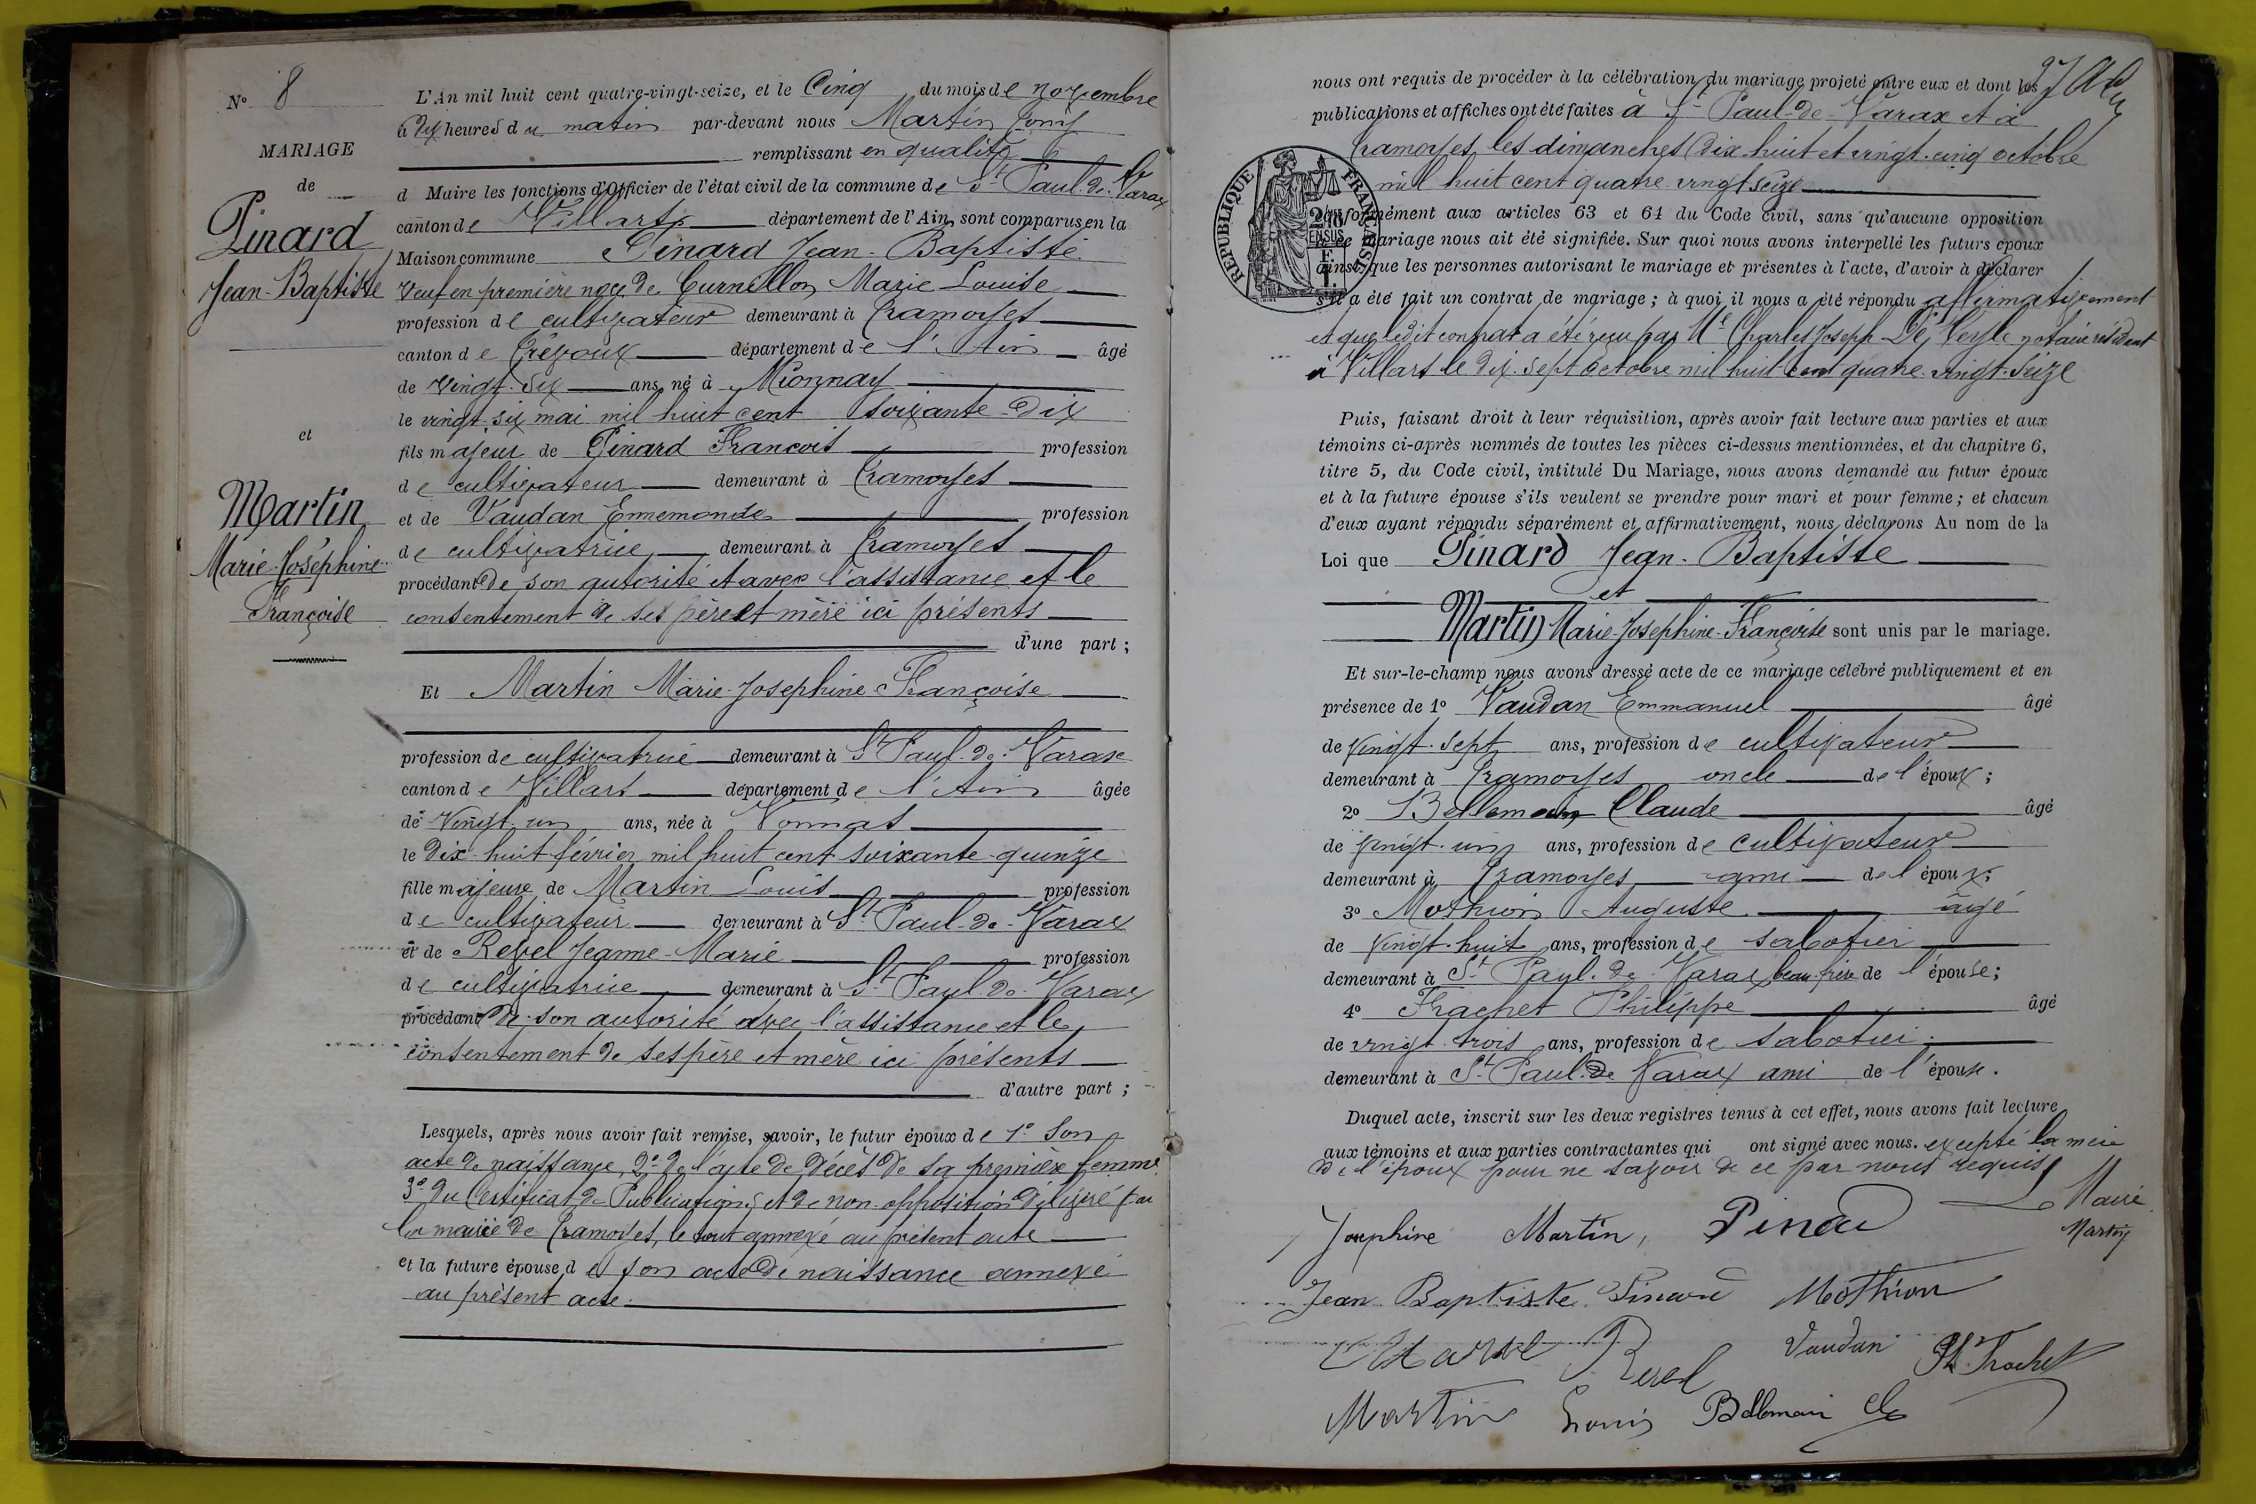 N° 8
MARIAGE
de
Pinard
Jean-Baptiste
et
Martin
Marie-Joséphine-
Françoise
L'An mil huit cent quatre-vingt-seize, et le Cinq du mois de novembre
à dix heures du matin par-devant nous Martin
remplissant en qualité
d Maire les fonctions d'Officier de l'état civil de la commune de St Paul-de-Varax
canton de Villars département de l'Ain, sont comparus en la
Maison commune Pinard Jean-Baptiste
veuf en première noce de Curnillon Marie Louise
profession de cultivateur demeurant à Cramoyes
canton de Trévoux département de l'Ain âgé
de vingt-six ans, né à Mionnay
le vingt six mai mil huit cent soixante-dix
fils majeur de Pinard François profession
de cultivateur demeurant à Cramoyes
et de Vaudan Ennemonde profession
de cultivatrice demeurant à Cramoyes
procédant de son autorité et avec l'assistance et le
consentement de ses père et mère ici présents
d'une part ;
Et Martin Marie-Josephine-Françoise
profession de cultivatrice demeurant à St Paul-de-Varax
canton de Villars département de l'Ain âgée
de vingt-un ans, née à Vonnas
le dix-huit février mil huit cent soixante-quinze
fille majeure de Martin Louis profession
de cultivateur demeurant à St Paul-de-Varax
et de Revel Jeanne-Marie profession
de cultivatrice demeurant à St Paul-de-Varax
procédant de son autorité avec l'assistance et le
consentement de ses père et mère ici présents
d'autre part ;
Lesquels, après nous avoir fait remise, savoir, le futur époux de 1° Son
acte de naissance, 2° de l'acte de décès de sa première femme
3° du Certificat de Publications et de non-opposition délivré par
la mairie de Cramoyes, le tout annexé au présent acte
et la future épouse, de son acte de naissance annexé
au présent acte.
nous ont requis de procéder à la célébration du mariage projeté entre eux et dont les
publications et affiches ont été faites à St Paul-de-Varax et à
Cramoyes les dimanches dix-huit et vingt-cinq octobre
mil huit cent quatre-vingt seize
RÉPUBLIQUE FRANÇAISE
conformément aux articles 63 et 64 du Code civil, sans qu'aucune opposition
à ce mariage nous ait été signifiée. Sur quoi nous avons interpellé les futurs époux
ainsi que les personnes autorisant le mariage et présentes à l'acte, d'avoir à déclarer
s'il a été fait un contrat de mariage ; à quoi il nous a été répondu affirmativement
et que ledit contrat a été reçu par Me Charles Joseph De Veyle notaire résidant
à Villars le dix-sept octobre mil huit cent quatre-vingt-seize
Puis, faisant droit à leur réquisition, après avoir fait lecture aux parties et aux
témoins ci-après nommés de toutes les pièces ci-dessus mentionnées, et du chapitre 6,
titre 5, du Code civil, intitulé Du Mariage, nous avons demandé au futur époux
et à la future épouse s'ils veulent se prendre pour mari et pour femme ; et chacun
d'eux ayant répondu séparément et affirmativement, nous déclarons Au nom de la
Loi que Pinard Jean-Baptiste
et
Martin Marie-Josephine-Françoise sont unis par le mariage.
Et sur-le-champ nous avons dressé acte de ce mariage célébré publiquement et en
présence de 1° Vaudan Emmanuel âgé
de vingt-sept ans, profession de cultivateur
demeurant à Cramoyes oncle de l'époux ;
2° Bellemain Claude âgé
de vingt-un ans, profession de cultivateur
demeurant à Cramoyes ami de l'époux ;
3° Mothion Auguste âgé
de vingt-huit ans, profession de sabotier
demeurant à St Paul-de-Varax beau-frère de l'épouse ;
4° Frachet Philippe âgé
de vingt-trois ans, profession de sabotier
demeurant à St Paul-de Varax ami de l'épouse.
Duquel acte, inscrit sur les deux registres tenus à cet effet, nous avons fait lecture
aux témoins et aux parties contractantes qui ont signé avec nous. excepté la mère
de l'époux pour ne savoir de ce par nous requis
Le Maire
Josephine Martin, Pinard Martin
Jean Baptiste Pinard Mothion
Revel Vaudan Ph. Frachet
Martin Louis Bellemain Cl